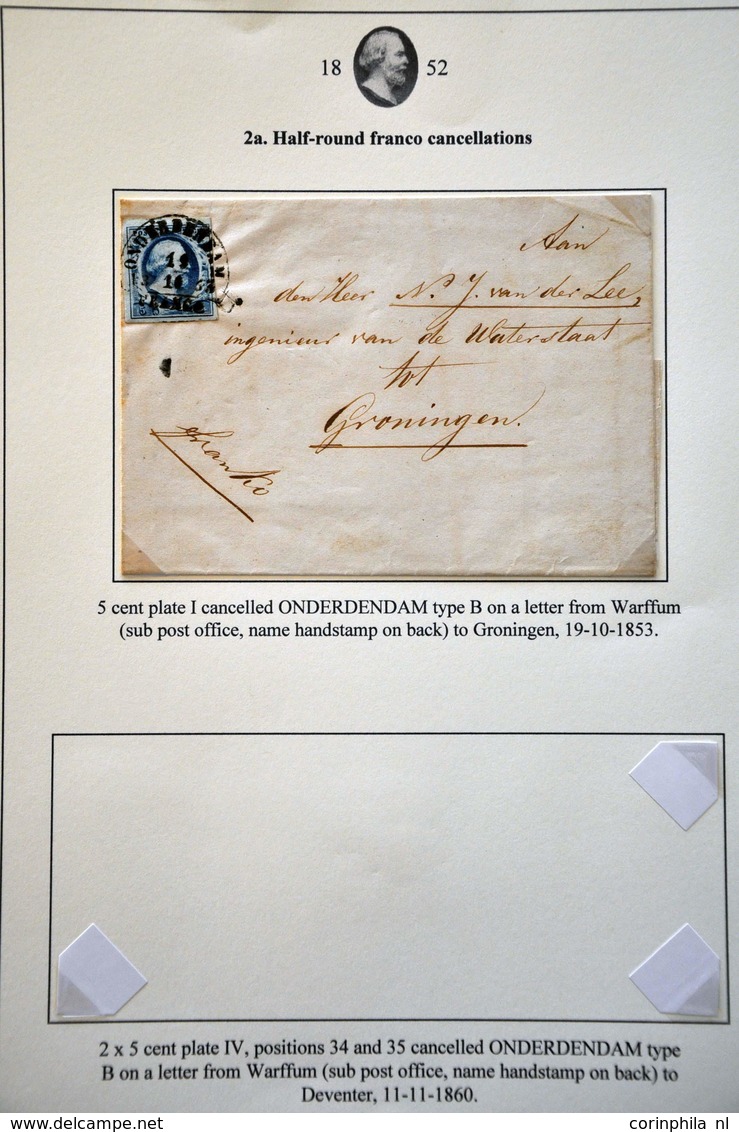 18 52
2a. Half-round franco cancellations
ONDERDENDAM
19
10
FRANCO
Aan
den Heer N. J. van der Lee,
ingenieur van de Waterstaat
tot
Groningen.
Franko
5 cent plate I cancelled ONDERDENDAM type B on a letter from Warffum
(sub post office, name handstamp on back) to Groningen, 19-10-1853.
2 x 5 cent plate IV, positions 34 and 35 cancelled ONDERDENDAM type
B on a letter from Warffum (sub post office, name handstamp on back) to
Deventer, 11-11-1860.
corinphila nl